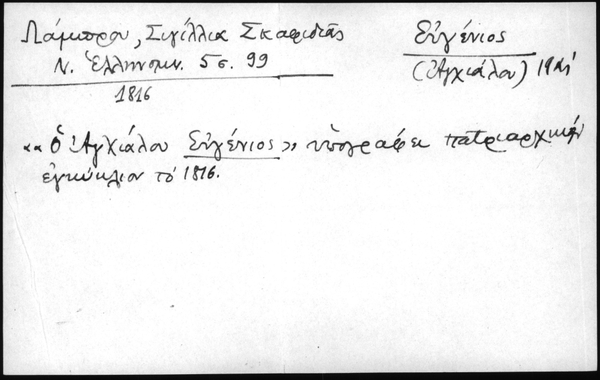 Λάμπρου, Σιγίλλια Σκαφιδιᾶς
Ν. Ἑλληνομν. 5 σ. 99
1816
Εὐγένιος
(Ἀγχιάλου)
«Ὁ Ἀγχιάλου Εὐγένιος» ὑπογράφει πατριαρχικήν
ἐγκύκλιον τό 1816.